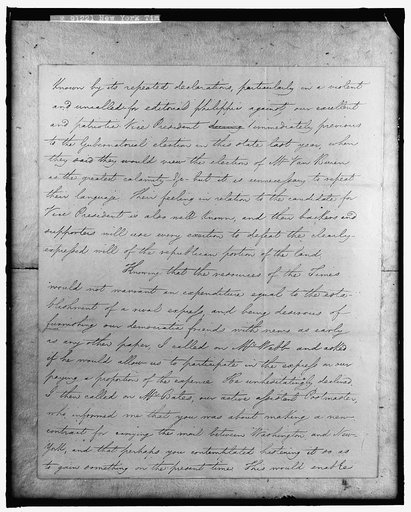 known by its repeated declarations, particularly in a violent
and uncalled for editorial philippic against our excellent
and patriotic Vice President during immediately previous
to the Gubernatorial election in this state last year, when
they said they would view the election of Mr Van Buren
as the greatest calamity &c- but it is unnecessary to repeat
their language. Their feeling in relation to the candidate for
Vice President is also well known, and their backers and
supporters will use every exertion to defeat the clearly
expressed will of the republican portion of the land.
Knowing that the resources of the Times
would not warrant an expenditure equal to the esta-
blishment of a rival express, and being desirous of
furnishing our democratic friends with news as early
as any other paper, I called on Mr Webb and asked
if he would allow us to participate in the express on our
paying a proportion of the expense. He unhesitatingly declined.
I then called on Mr Bates, our active assistant Postmaster,
who informed me that you was about making a new
contract for carrying the mail between Washington and New-
York, and that perhaps you contemplated hastening it so as
to gain something on the present time. This would enable